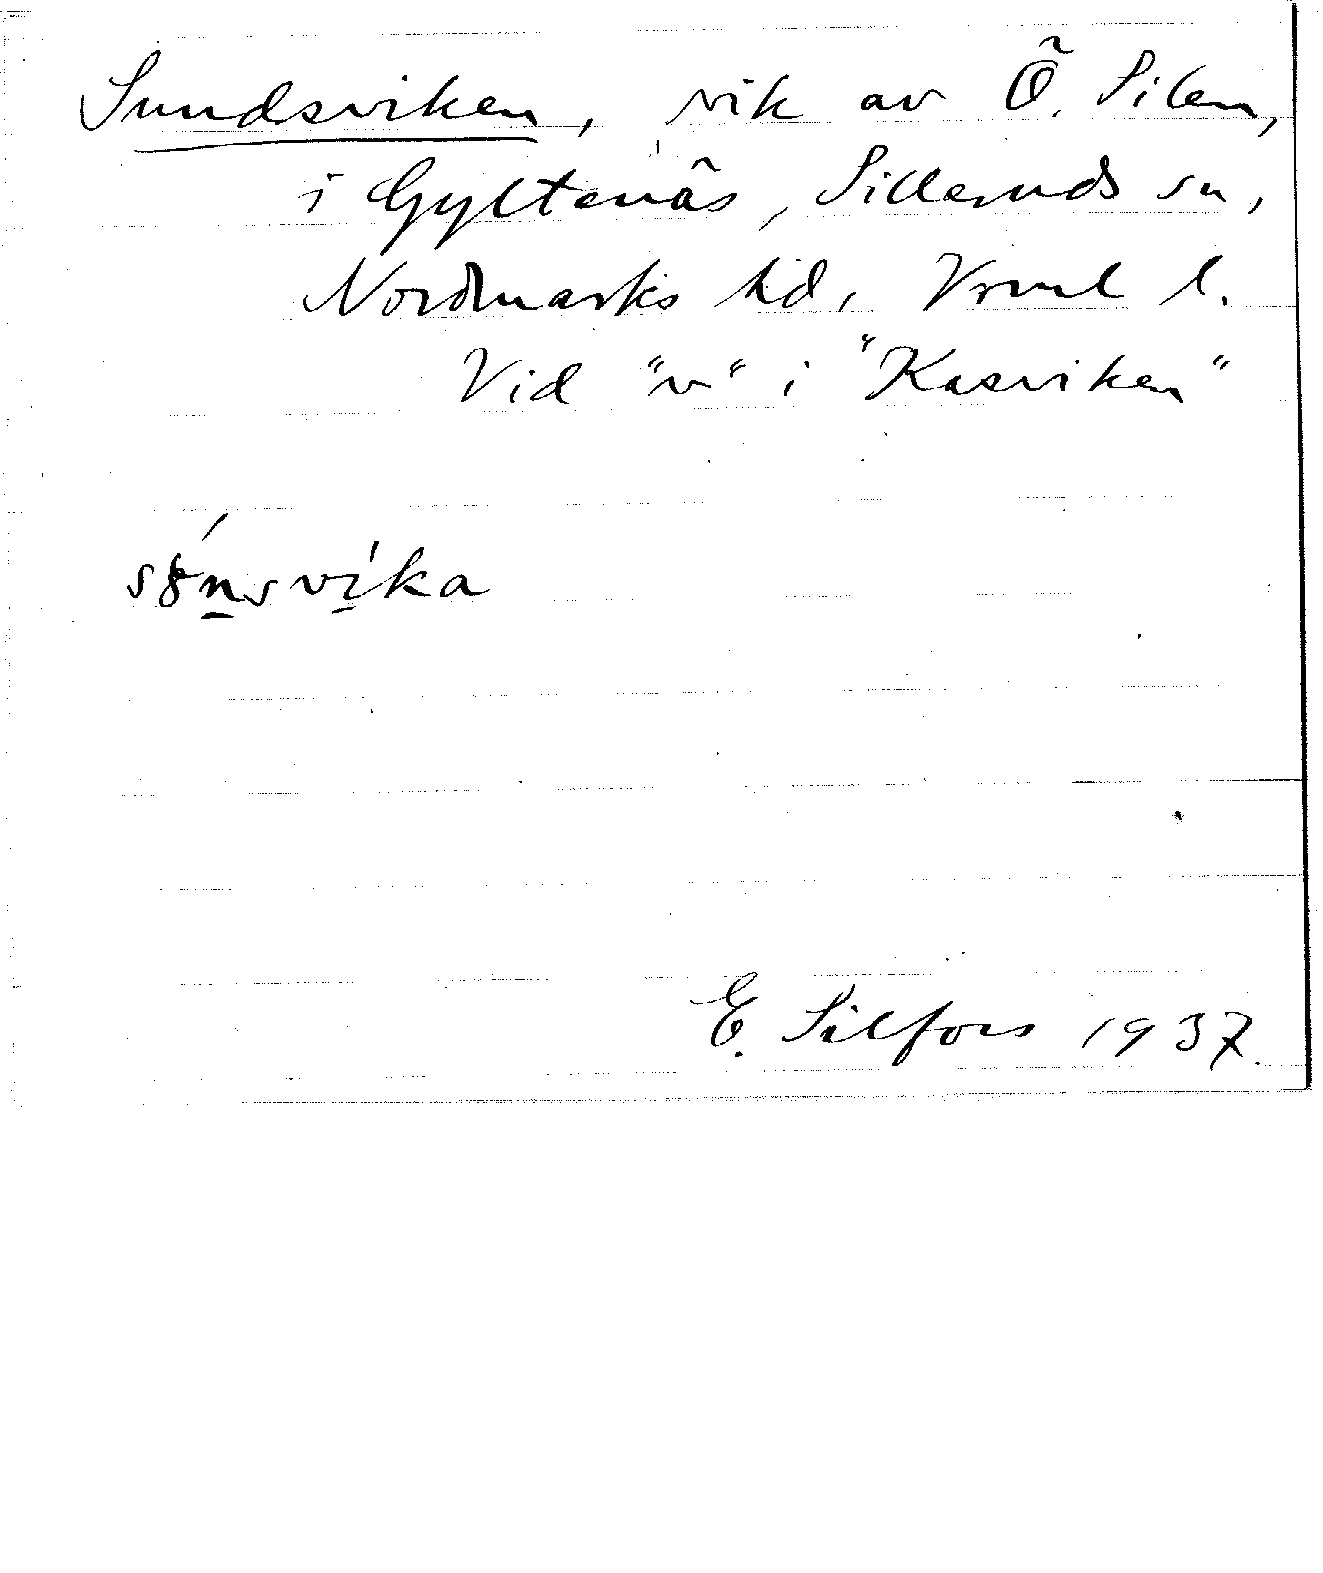 Sundsviken, vik av Ö. Silen,
i Gyltenäs, Silleruds sn,
Nordmarks hd, Vrml l.
Vid "v" i "Kasviken"
E. Silfors 1937.